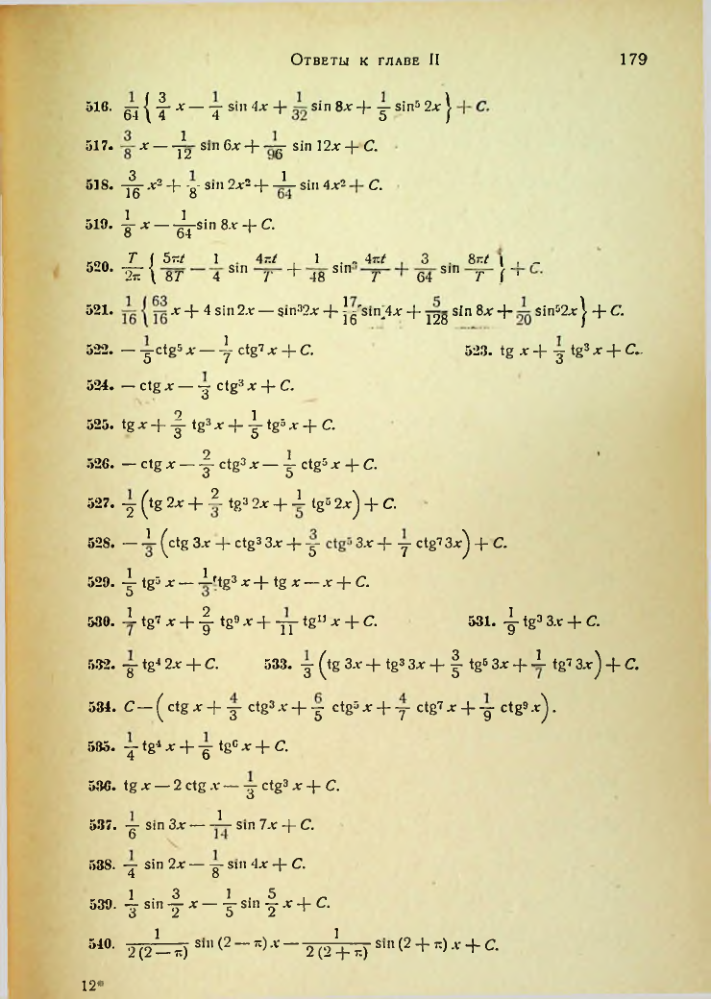 Ответы к главе II 179
516. 1/64 { 3/4 x — 1/4 sin 4x + 1/32 sin 8x + 1/5 sin⁵ 2x } + C.
517. 3/8 x — 1/12 sin 6x + 1/96 sin 12x + C.
518. 3/16 x² + 1/8 sin 2x² + 1/64 sin 4x² + C.
519. 1/8 x — 1/64 sin 8x + C.
520. T/2π { 5πt/8T — 1/4 sin 4πt/T + 1/48 sin³ 4πt/T + 3/64 sin 8πt/T } + C.
521. 1/16 { 63/16 x + 4 sin 2x — sin³2x + 17/16 sin 4x + 5/128 sin 8x + 1/20 sin⁵2x } + C.
522. — 1/5 ctg⁵ x — 1/7 ctg⁷ x + C. 523. tg x + 1/3 tg³ x + C.
524. — ctg x — 1/3 ctg³ x + C.
525. tg x + 2/3 tg³ x + 1/5 tg⁵ x + C.
526. — ctg x — 2/3 ctg³ x — 1/5 ctg⁵ x + C.
527. 1/2 (tg 2x + 2/3 tg³ 2x + 1/5 tg⁵ 2x) + C.
528. — 1/3 (ctg 3x + ctg³ 3x + 3/5 ctg⁵ 3x + 1/7 ctg⁷ 3x) + C.
529. 1/5 tg⁵ x — 1/3 tg³ x + tg x — x + C.
530. 1/7 tg⁷ x + 2/9 tg⁹ x + 1/11 tg¹¹ x + C. 531. 1/9 tg³ 3x + C.
532. 1/8 tg⁴ 2x + C. 533. 1/3 (tg 3x + tg³ 3x + 3/5 tg⁵ 3x + 1/7 tg⁷ 3x) + C.
534. C — (ctg x + 4/3 ctg³ x + 6/5 ctg⁵ x + 4/7 ctg⁷ x + 1/9 ctg⁹ x).
535. 1/4 tg⁴ x + 1/6 tg⁶ x + C.
536. tg x — 2 ctg x — 1/3 ctg³ x + C.
537. 1/6 sin 3x — 1/14 sin 7x + C.
538. 1/4 sin 2x — 1/8 sin 4x + C.
539. 1/3 sin 3/2 x — 1/5 sin 5/2 x + C.
540. 1/2 (2 — π) sin (2 — π) x — 1/2 (2 + π) sin (2 + π) x + C.
12*